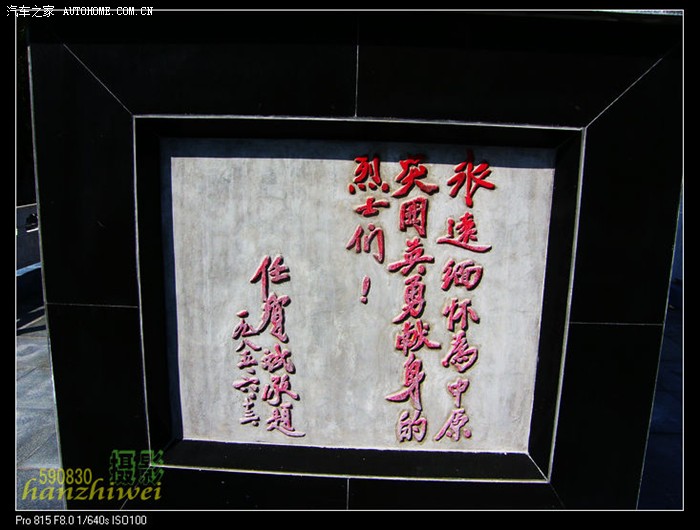 汽车之家 AUTOHOME.COM.CN
永远缅怀为中原
突围英勇献身的
烈士们！
任质斌敬题
一九八五·六·三
590830 摄影
hanzhiwei
Pro 815 F8.0 1/640s ISO100